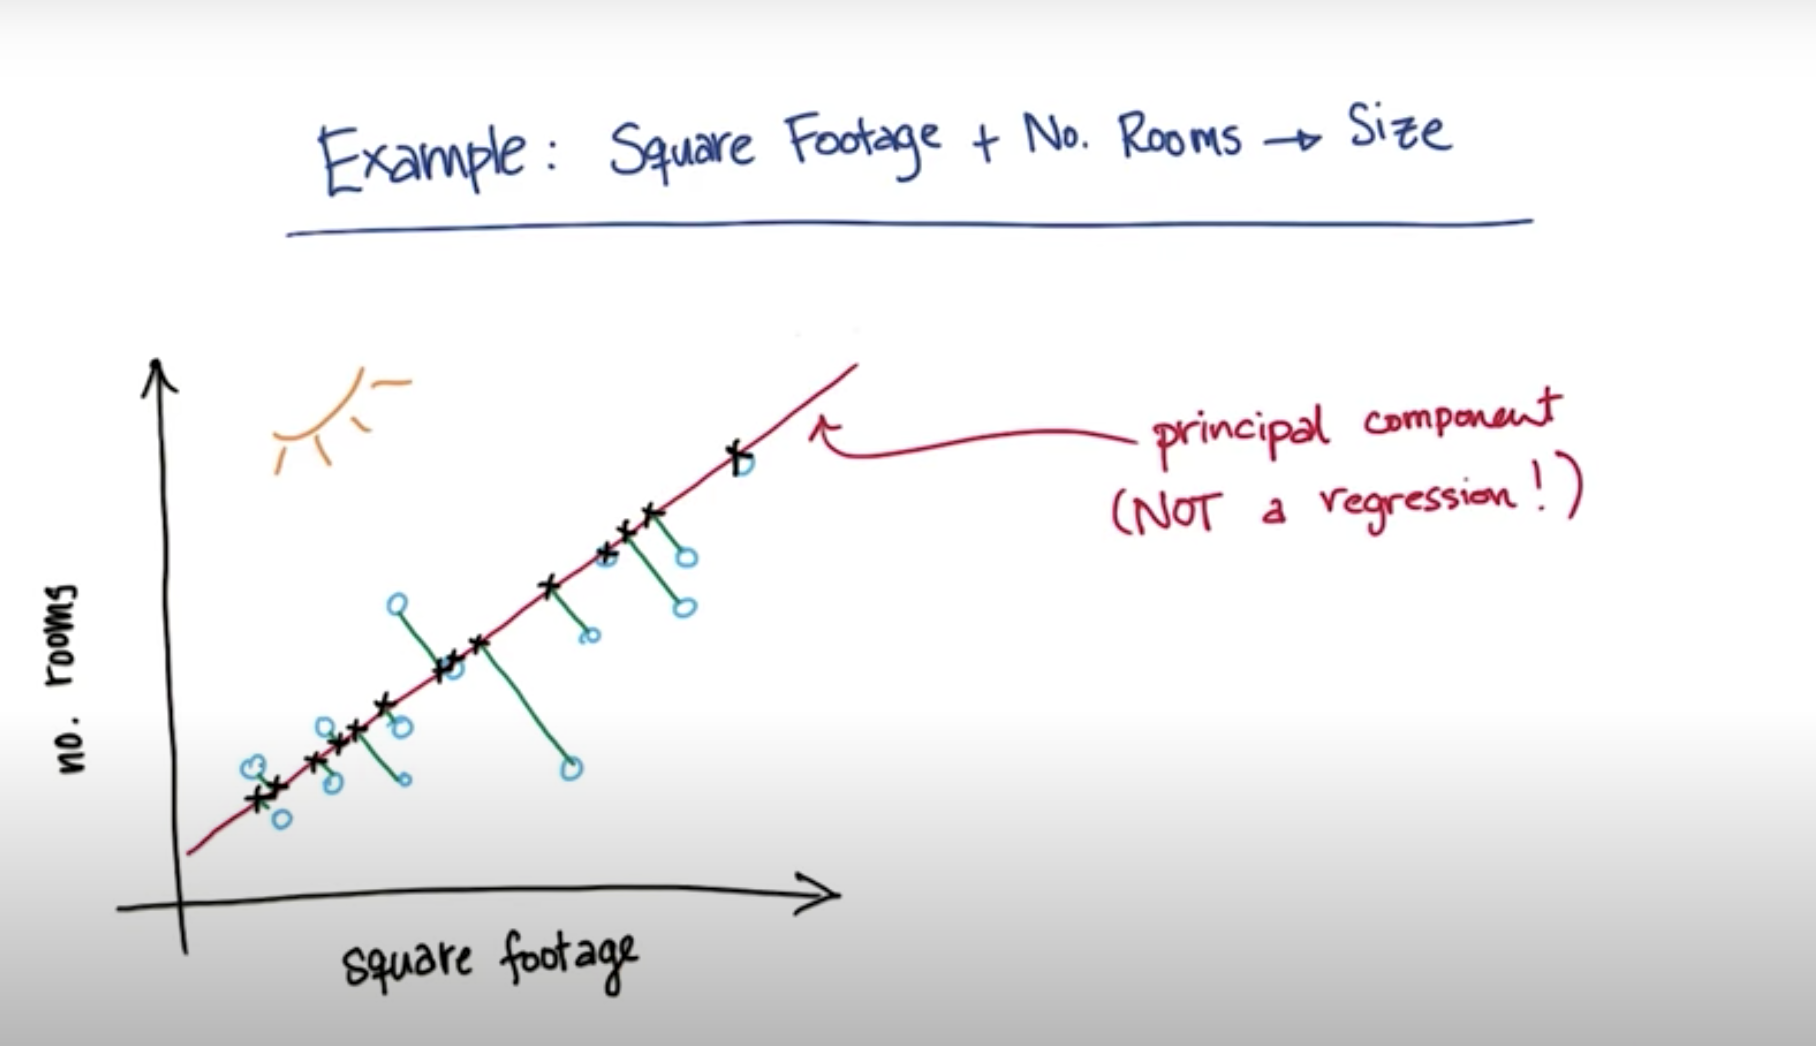 Example: Square Footage + No. Rooms → Size
principal component
(NOT a regression!)
no. rooms
square footage